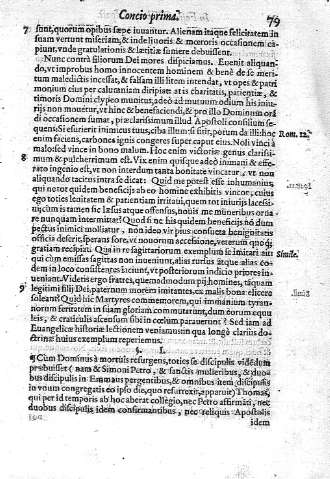 Concio prima. 79
7 sunt, quorum opibus sæpe iuuantur. Alienam itaque felicitatem in
suam vertunt miseriam, & inde liuoris & mœroris occasionem ca
piunt, vnde gratulationis & lætitiæ sumere debuissent.
Nunc contra filiorum Dei mores dispiciamus. Euenit aliquan-
do, vt improbus homo innocentem hominem & bene de se meri-
tum maledictis incessat, & falsam illi litem intendat, vt opes & patri
monium eius per calumniam diripiat: at is charitatis, patientiæ, &
timoris Domini clypeo munitus, adeò ad mutuum odium his iniu-
rijs non mouetur, vt hinc & benefaciendi, & pro illo Dominum ora
di occasionem sumat, præclarissimum illud Apostoli consilium se-
quens: Si esurierit inimicus tuus, ciba illum: si sitit, potum da illi: hoc Rom. 12.
enim faciens, carbones ignis congeres super caput eius. Noli vinci à
malo sed vince in bono malum. Hoc enim victoriæ genus clarissi-
8 mum & pulcherrimum est. Vix enim quisque adeò inhumani & effe-
rato ingenio est, vt non interdum tanta bonitate vincatur, vt non
aliquando tacitus intra se dicat: Quid me potest esse inhumanius,
qui
ego toties lenitatem & patientiam irritaui, quem tot iniurijs lacessi-
rum
re nunquam intermittat? Quod si ne his quidem beneficijs
pectus inimici molliatur, non ideo vir pius consueta benignitatis
officia deserit, sperans fore, vt nouorum accessione, veterum quoque
gratiam recipiat. Qui in re sagittariorum exemplum se imitari ait: Simile.
qui cùm emissas sagittas non inueniunt, alias rursus atque alias eo-
dem in loco consistentes iaciunt, vt posteriorum indicio priores in-
ueniant. Videtis ergo fratres, quemadmodum pij homines, tāquam
9 legitimi filij Dei, paternum morem imitantes, ex malis bona elicere
soleant? Quid hic Martyres commemorem, qui immanium tyran-
norum feritatem in suam gloriam commutarunt, dum eorum eque
leis, & cratibus ascensum sibi in cœlum parauerunt? Sed iam ad
Euangelicæ historiæ lectionem veniamus: in qua longè clariùs do-
ctrinæ huius exemplum reperiemus.
§. I.
¶ Cùm Dominus à mortuis resurgens, toties se discipulis videndum
præbuisset (nam & Simoni Petro, & sanctis mulieribus, & duo-
bus discipulis in Emmaus pergentibus, & omnibus item discipulis
in vnum congregatis eo ipso die, quo resurrexit, apparuit) Thomas,
qui per id temporis ab hoc aberat collegio, nec Petro affirmāti, nec
duobus discipulis idem confirmantibus, nec reliquis Apostolis
idem